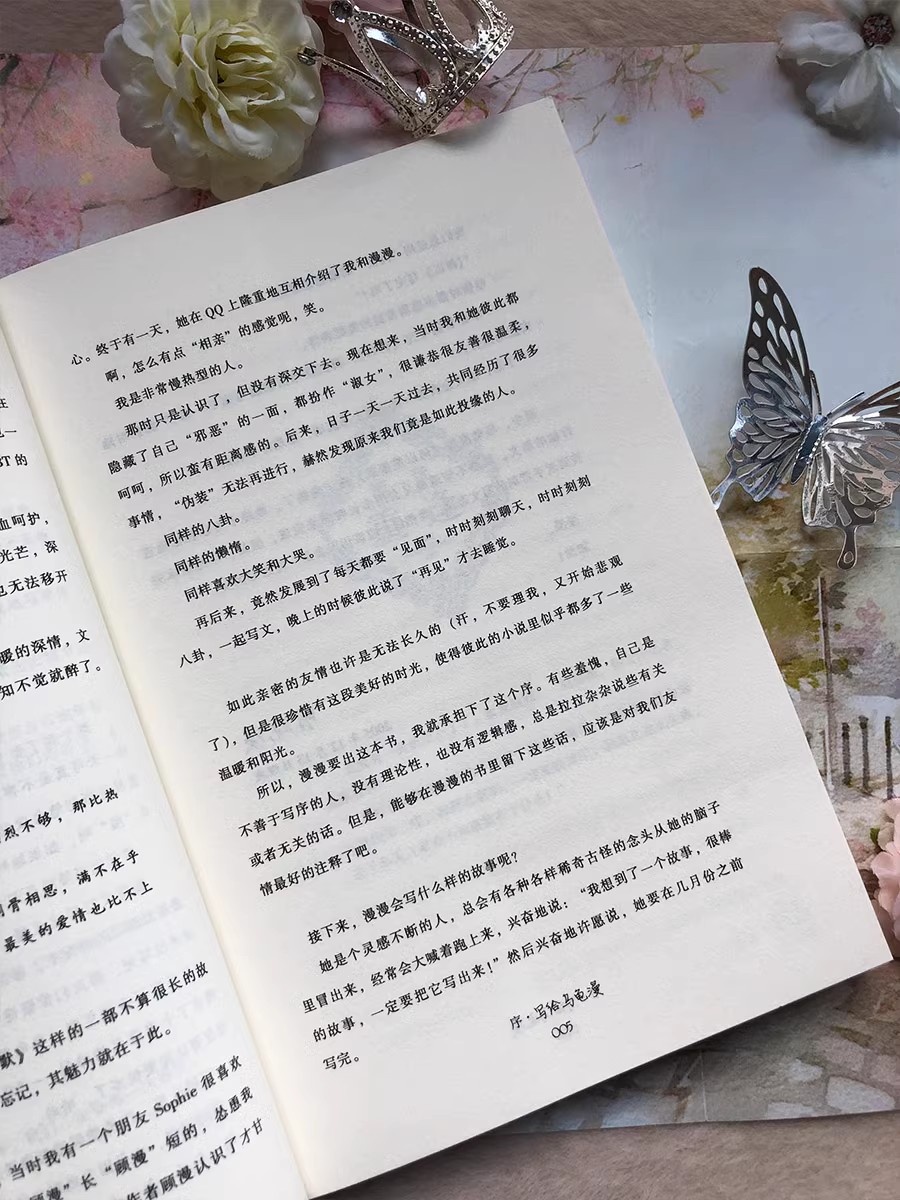 在
一
ST 的
血呵护,
光芒,深
也无法移开
暖的深情,文
知不觉就醉了。
烈不够,那比热
刻骨相思,满不在乎
最美的爱情也比不上
默》这样的一部不算很长的故
忘记,其魅力就在于此。
当时我有一个朋友 Sophie 很喜欢
顾漫”长“顾漫”短的,怂恿我
作者顾漫认识了才甘
心。终于有一天,她在 QQ 上隆重地互相介绍了我和漫漫。
啊,怎么有点“相亲”的感觉呢,笑。
我是非常慢热型的人。
那时只是认识了,但没有深交下去。现在想来,当时我和她彼此都
隐藏了自己“邪恶”的一面,都扮作“淑女”,很谦恭很友善很温柔,
呵呵,所以蛮有距离感的。后来,日子一天一天过去,共同经历了很多
事情,“伪装”无法再进行,赫然发现原来我们竟是如此投缘的人。
同样的八卦。
同样的懒惰。
同样喜欢大笑和大哭。
再后来,竟然发展到了每天都要“见面”,时时刻刻聊天,时时刻刻
八卦,一起写文,晚上的时候彼此说了“再见”才去睡觉。
如此亲密的友情也许是无法长久的(汗,不要理我,又开始悲观
了),但是很珍惜有这段美好的时光,使得彼此的小说里似乎都多了一些
温暖和阳光。
所以,漫漫要出这本书,我就承担下了这个序。有些羞愧,自己是
不善于写序的人,没有理论性,也没有逻辑感,总是拉拉杂杂说些有关
或者无关的话。但是,能够在漫漫的书里留下这些话,应该是对我们友
情最好的注释了吧。
接下来,漫漫会写什么样的故事呢?
她是个灵感不断的人,总会有各种各样稀奇古怪的念头从她的脑子
里冒出来,经常会大喊着跑上来,兴奋地说:“我想到了一个故事,很棒
的故事,一定要把它写出来!”然后兴奋地许愿说,她要在几月份之前
写完。
序·写给乌龟漫
005